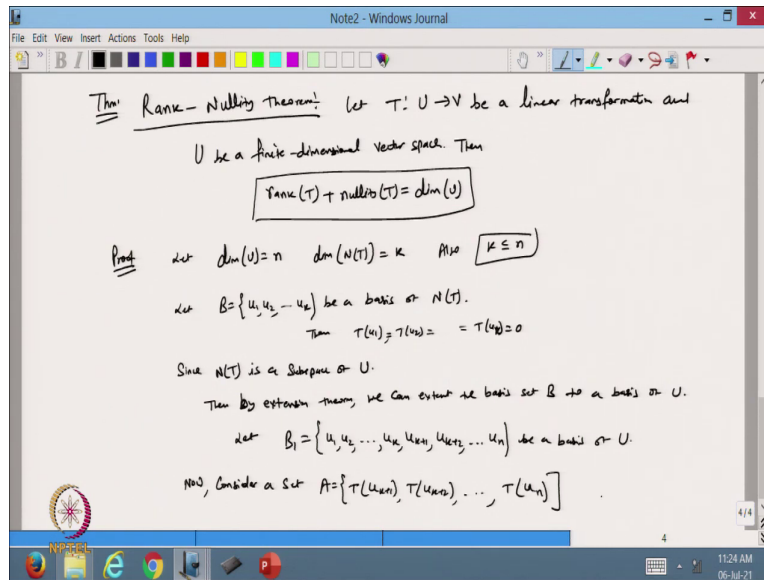 Note2 - Windows Journal
File Edit View Insert Actions Tools Help
Thm: Rank-Nullity Theorem: Let T: U → V be a linear transformatn and
U be a finite-dimensional vector space. Then
rank(T) + nullity(T) = dim(U)
Proof Let dim(U) = n dim(N(T)) = k Also k ≤ n
Let B = {u1, u2, -- uk} be a basis of N(T).
Then T(u1) = T(u2) = = T(uk) = 0
Since N(T) is a Subspace of U.
Then by extension theorem, we can extent the basis set B to a basis of U.
Let B1 = {u1, u2, ..., uk, uk+1, uk+2, ... un} be a basis of U.
Now, Consider a Set A = {T(uk+1), T(uk+2), ..., T(un)]
NPTEL
4/4
4
11:24 AM
06-Jul-21